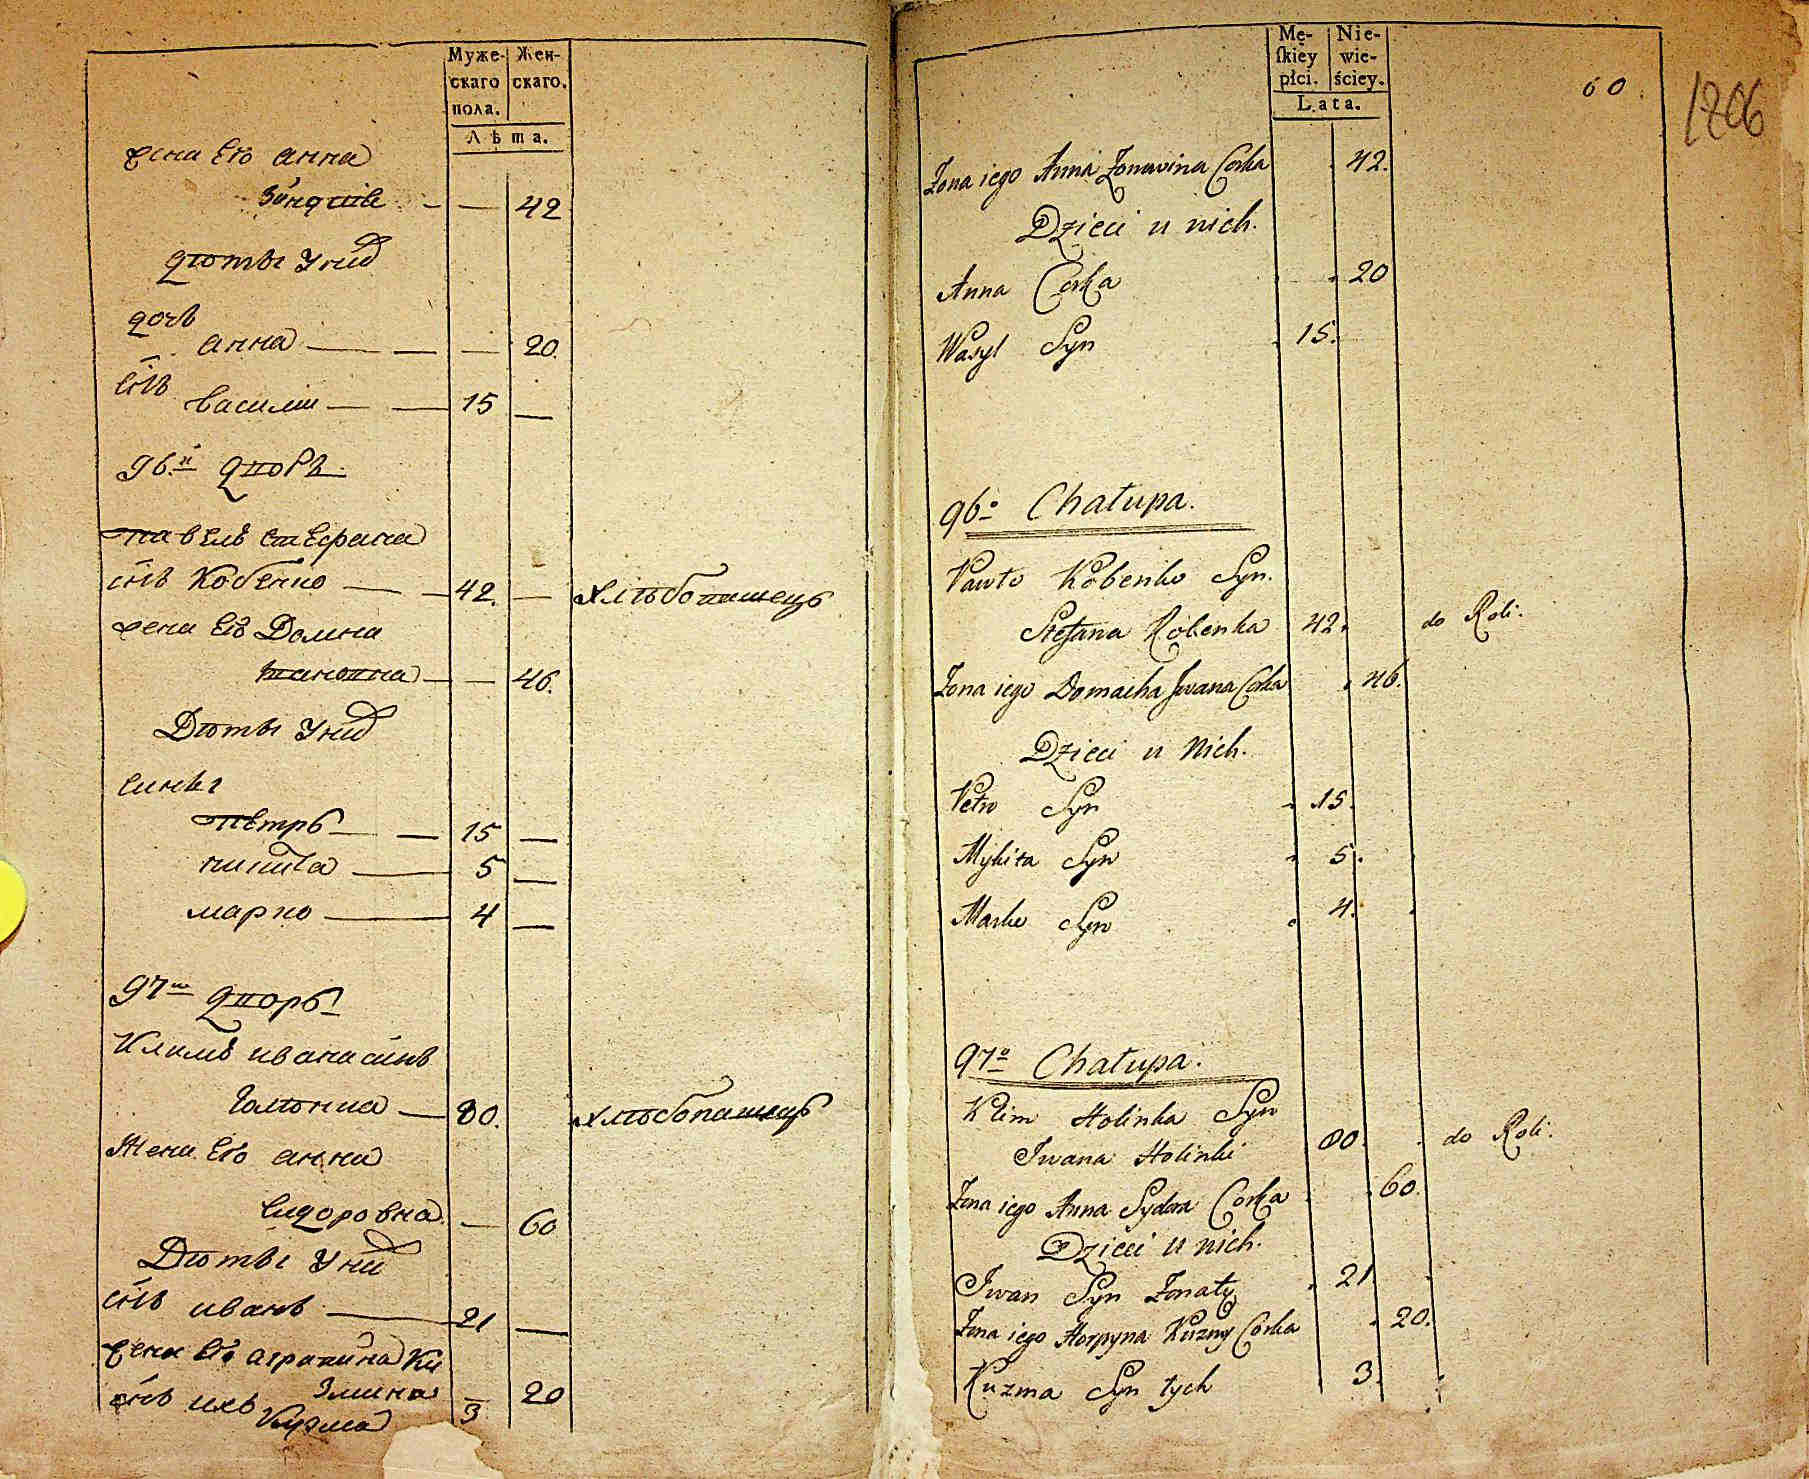 Муже-
скаго
пола.
Жен-
скаго.
Лѣта.
жена его анна
42
дѣти у них
дочь
анна 20.
снъ
василии 15
96.й дворъ
павелъ стефана
снъ Кобенко 42. хлѣбопашецъ
жена его Домна
46.
Дѣти у них
сины
петръ 15
никита 5
марко 4
97й дворъ
Климъ ивана синъ
Голѣнка 80. хлѣбопашецъ
Жена его анна
сидоровна 60
Дѣти у них
снъ иванъ 21
жена его аграпина Ку
змина 20
снъ ихъ Кузма 3
Mę-
skiey
płci.
Nie-
wie-
ściey.
Lata.
60
1806
Żona iego Anna Corka 42.
Dzieci u nich.
Anna Corka 20
Wasyl Syn 15.
96o Chałupa.
Pawło Kobenko Syn.
Stefana Kobenka 42. do Roli.
Żona iego Domacha Jwana Corka 46.
Dzieci u Nich.
Petro Syn 15.
Mykita Syn 5.
Marko Syn 4.
97o Chałupa.
Klim Holinka Syn
Jwana Holinki 80. do Roli.
Żona iego Anna Sydora Corka 60.
Dzieci u nich.
Jwan Syn Żonaty 21
Żona iego Horpyna Kuzmy Corka 20.
Kuzma Syn tych 3.